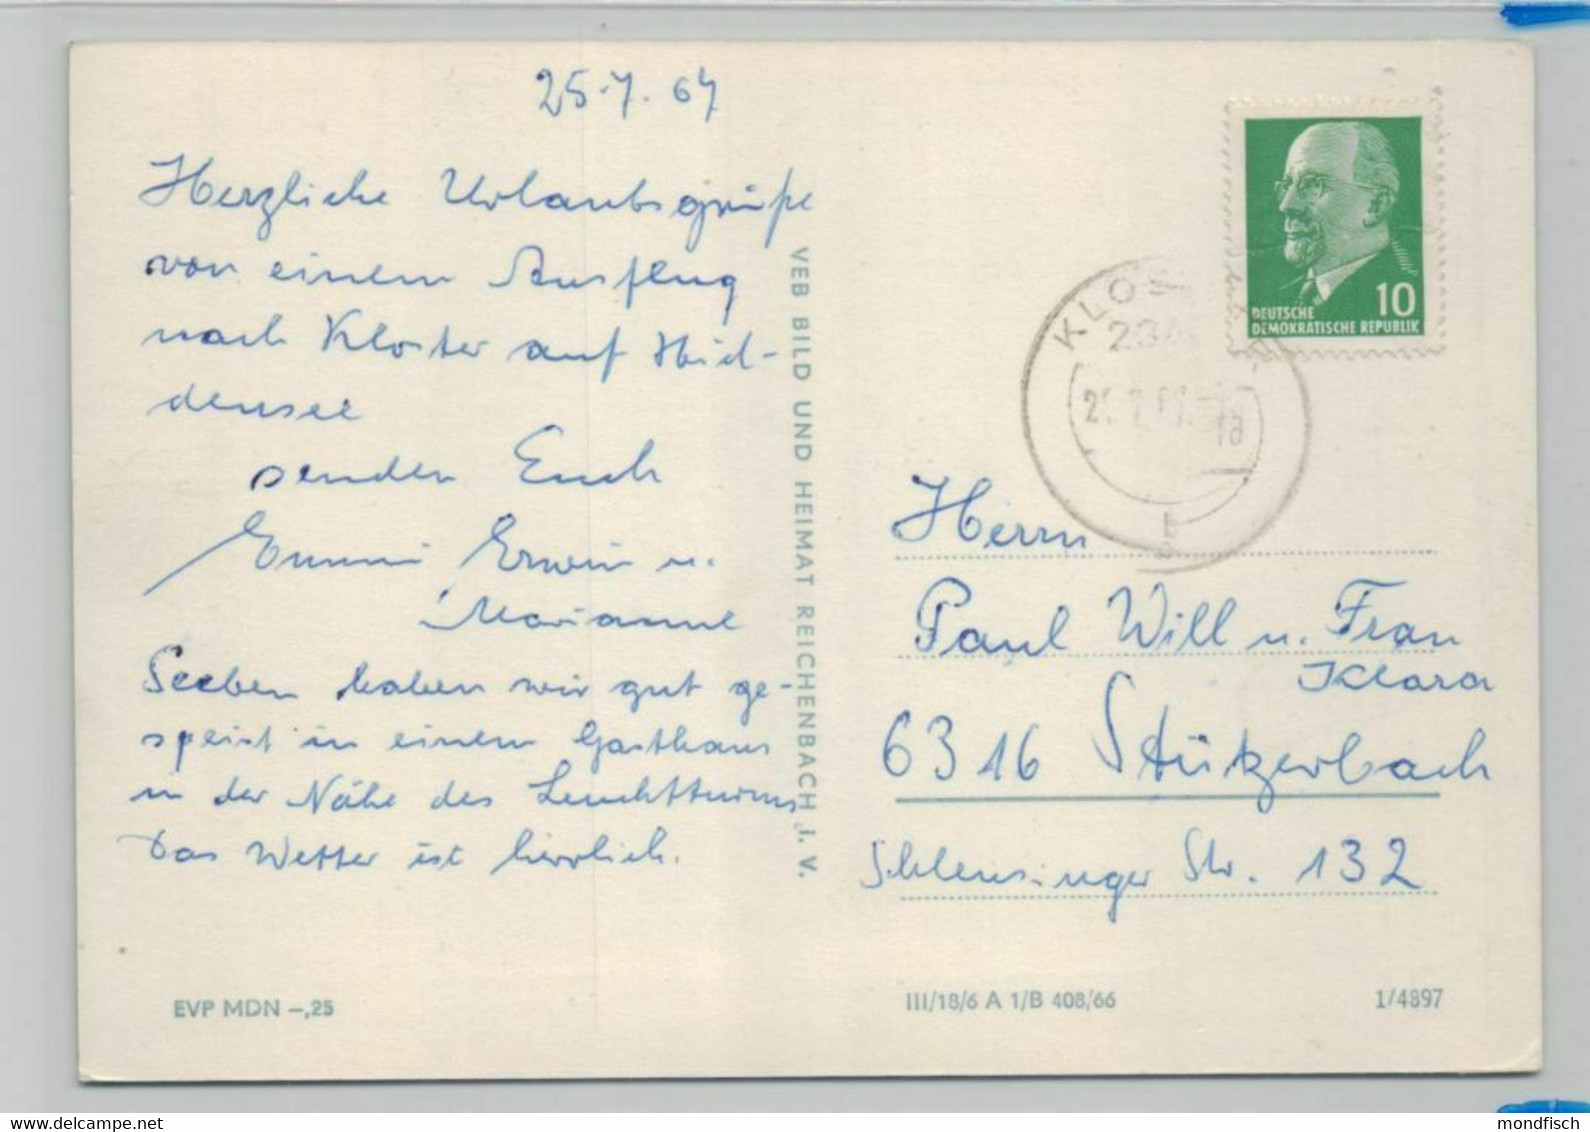 25.7.67
Herzliche Urlaubsgrüße
von einem Ausflug
nach Kloster auf Hid-
densee
senden Euch
Emmi Erwin u.
Marianne
Soeben haben wir gut ge-
speist in einem Gasthaus
in der Nähe des Leuchtturms
Das Wetter ist herrlich.
EVP MDN –,25
VEB BILD UND HEIMAT REICHENBACH I. V.
10
DEUTSCHE
DEMOKRATISCHE REPUBLIK
b
Herrn
Paul Will u. Frau
Klara
6316 Stützerbach
Schleusinger Str. 132
III/18/6 A 1/B 408/66
1/4897
mondfisch